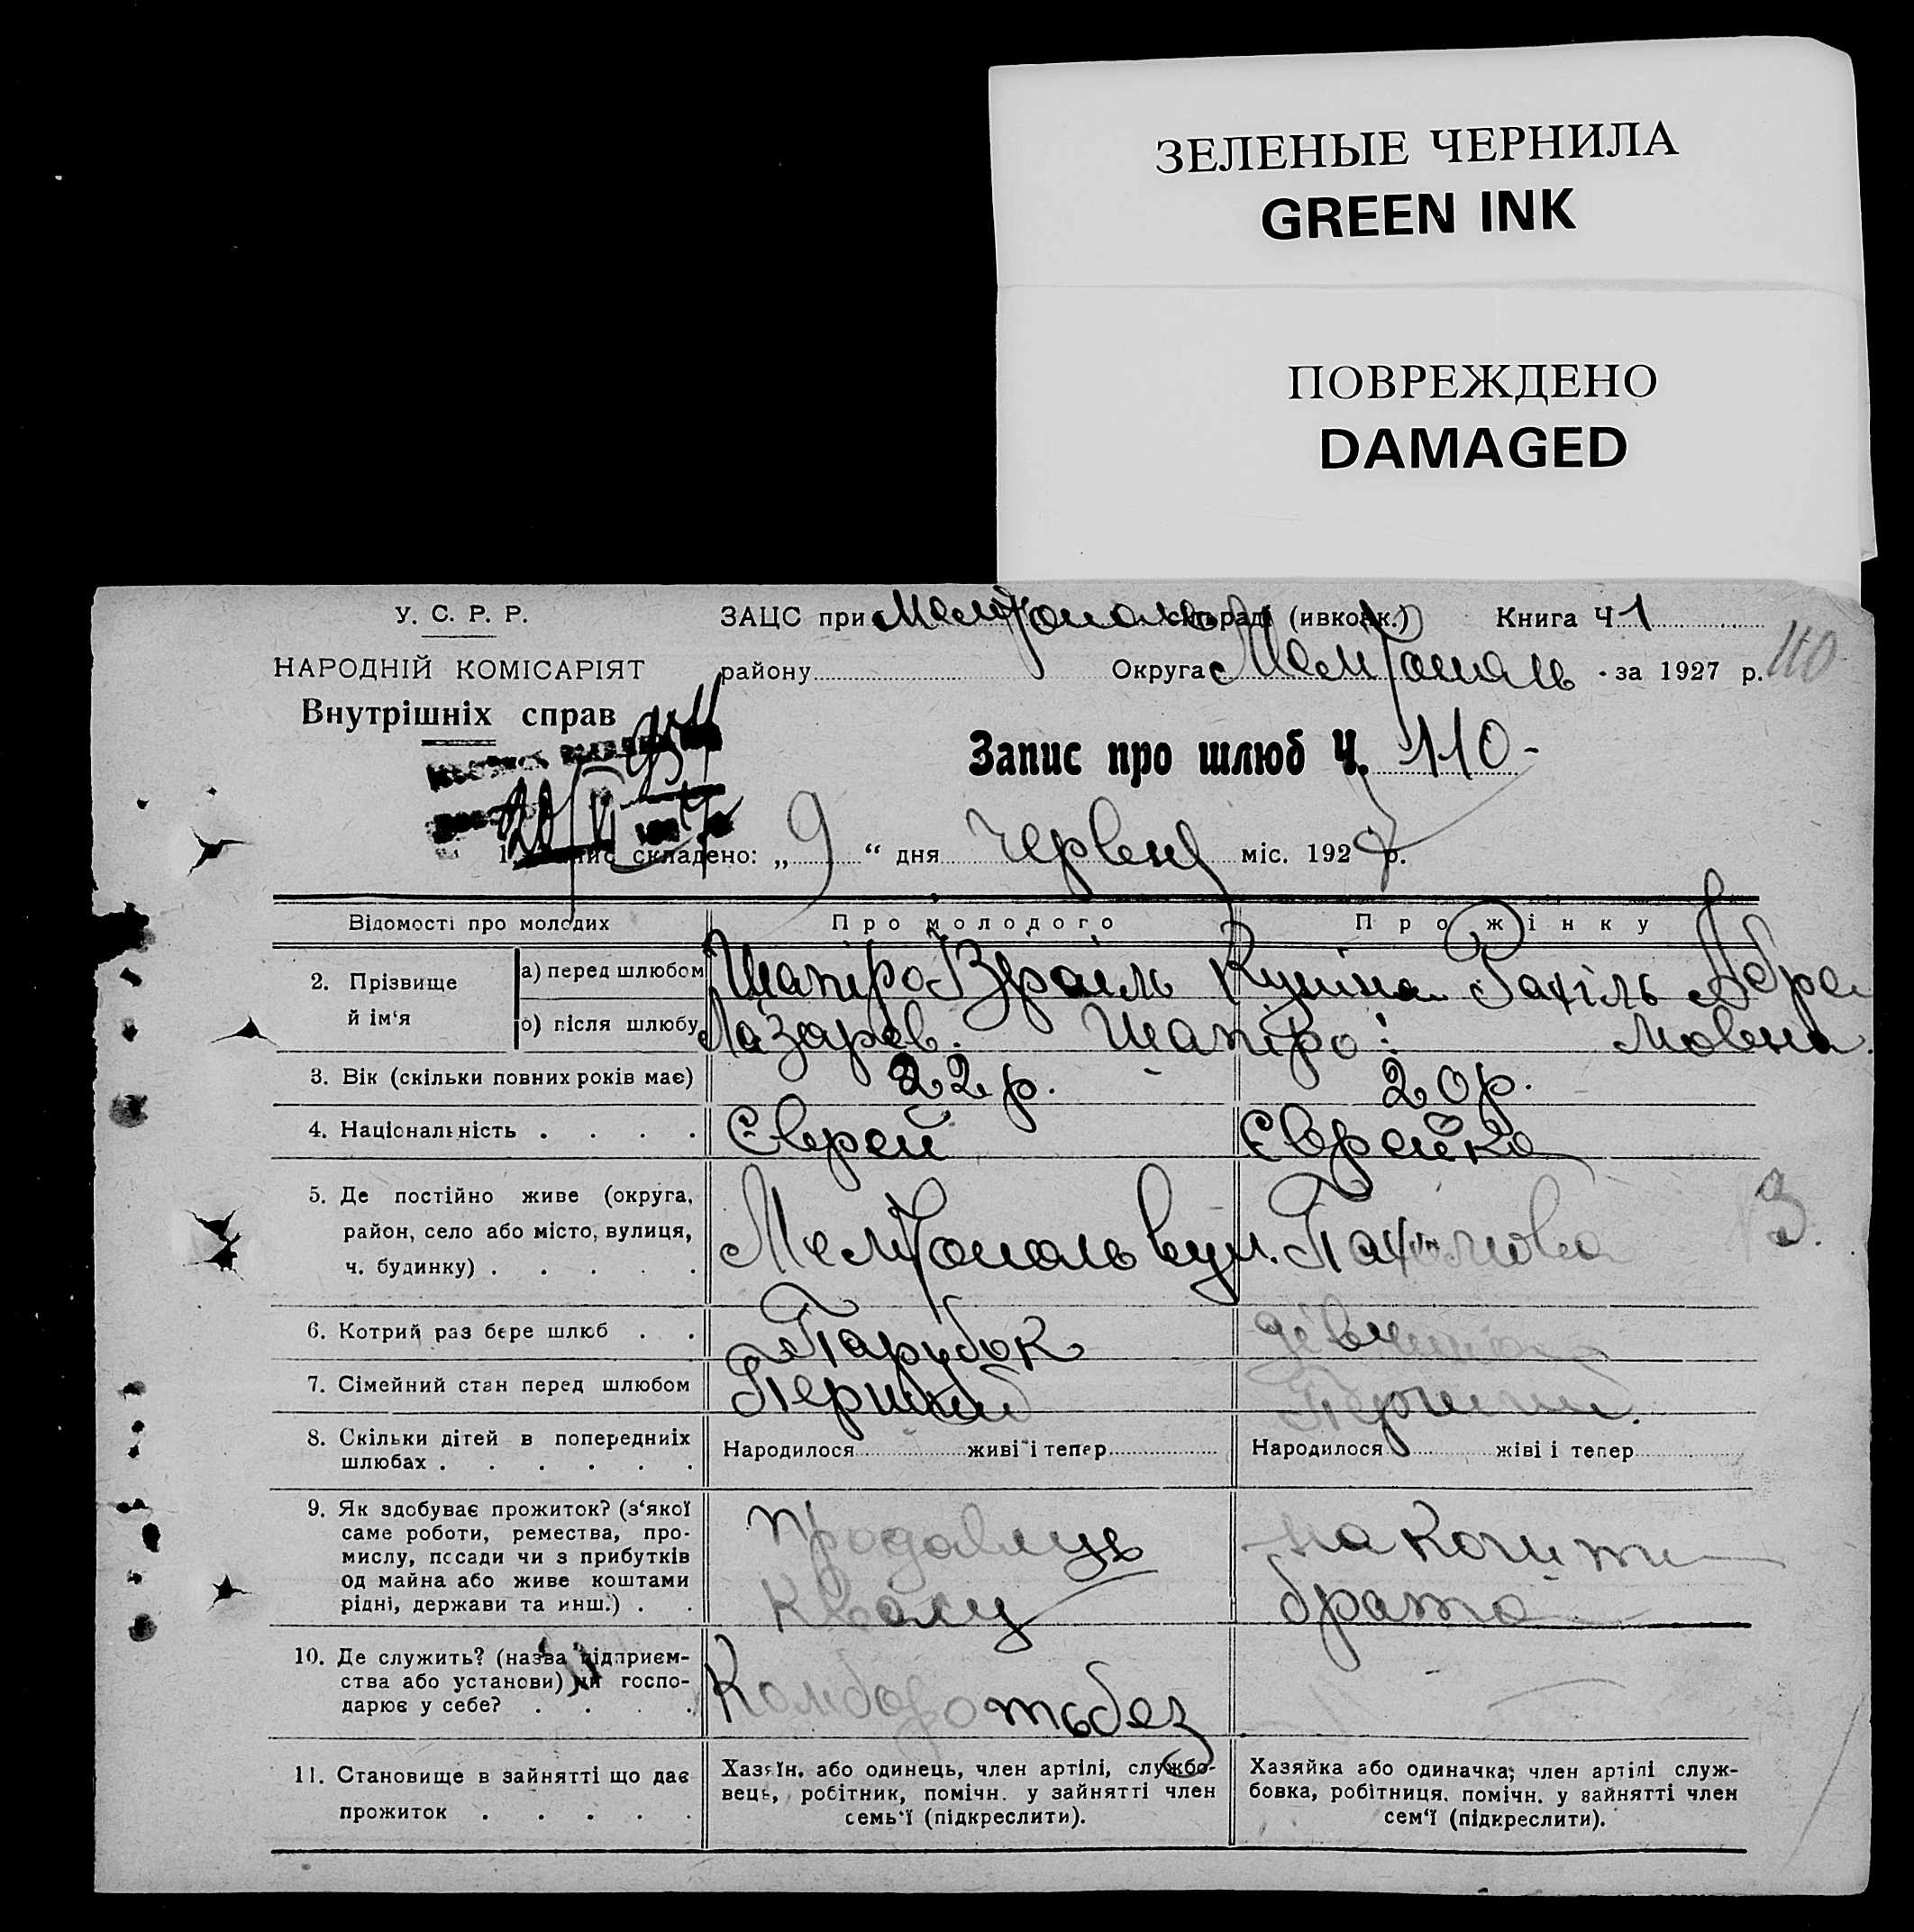 ЗЕЛЕНЫЕ ЧЕРНИЛА
GREEN INK
ПОВРЕЖДЕНО
DAMAGED
У. С. Р. Р.
ЗАЦС при сільраді (ивконк.) Книга Ч 1
НАРОДНІЙ КОМІСАРІЯТ
району Округа Мелітополь за 1927 р. 110
Внутрішніх справ
Запис про шлюб Ч. 110
1. Запис складено: „ 9 “ дня Червня міс. 1927 р.
Відомості про молодих
Про молодого
Про жінку
2. Прізвище й ім‘я
а) перед шлюбом
Шапіро Ізраіль
Рахіль Абра
о) після шлюбу
Лазарев. Шапіро:
мовна.
3. Вік (скільки повних років має)
22 р.
20 р.
4. Національність . . . .
Єврей
Єврейка
5. Де постійно живе (округа,
район, село або місто, вулиця,
ч. будинку) . . . . .
Мелітополь вул. 3.
6. Котрий раз бере шлюб . .
Парубок
7. Сімейний стан перед шлюбом
Перший
Перший.
8. Скільки дітей в попередніх
шлюбах . . . . . .
Народилося живі і тепер
Народилося жіві і тепер
9. Як здобуває прожиток? (з‘якої
саме роботи, ремества, про-
мислу, посади чи з прибутків
од майна або живе коштами
рідні, держави та инш.) . .
продавець
квасу
на кошти
брата
10. Де служить? (назва підприєм-
ства або установи) чи госпо-
дарює у себе? . . . .
11. Становище в зайнятті що дає
прожиток . . . . .
Хазяїн, або одинець, член артілі, службо-
вець, робітник, помічн. у зайнятті член
семь‘ї (підкреслити).
Хазяйка або одиначка; член артілі служ-
бовка, робітниця, помічн. у зайнятті член
сем‘ї (підкреслити).